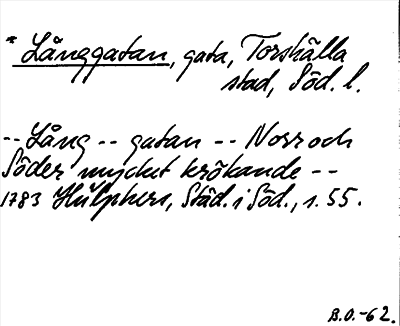 * Långgatan, gata, Torshälla
stad, Söd. l.
-- Lång -- gatan -- Norr och
Söder mycket krökande --
1783 Hülphers, Städ. i Söd., s. 55.
B.O.-62.